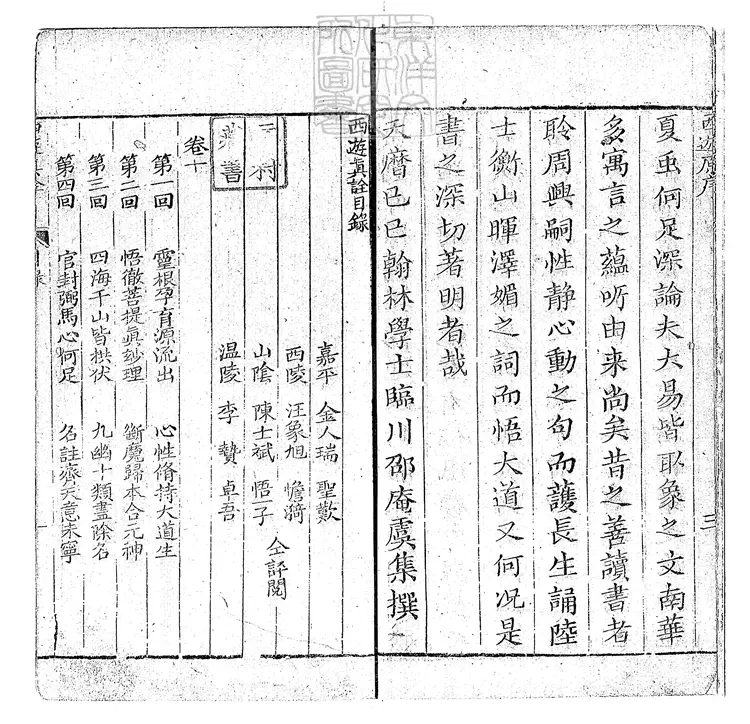 西遊原序
夏䖝何足深論夫大易皆取象之文南華
多寓言之蘊所由来尚矣昔之善讀書者
聆周興嗣性静心動之句而䕶長生誦陸
士衡山暉澤媚之詞而悟大道又何况是
書之深切著明者哉
天曆己巳翰林學士臨川邵庵虞集撰
三
西遊眞詮目録
嘉平 金人瑞 聖歎
西陵 汪象旭 憺漪
山陰 陳士斌 悟一子
温陵 李贄 卓吾
仝評閲
卷十
第一回 靈根孕育源流出 心性脩持大道生
第二回 悟徹菩提眞玅理 斷魔歸本合元神
第三回 四海千山皆拱伏 九幽十類盡除名
第四回 官封弼馬心何足 名註齊天意未寧
目録
一